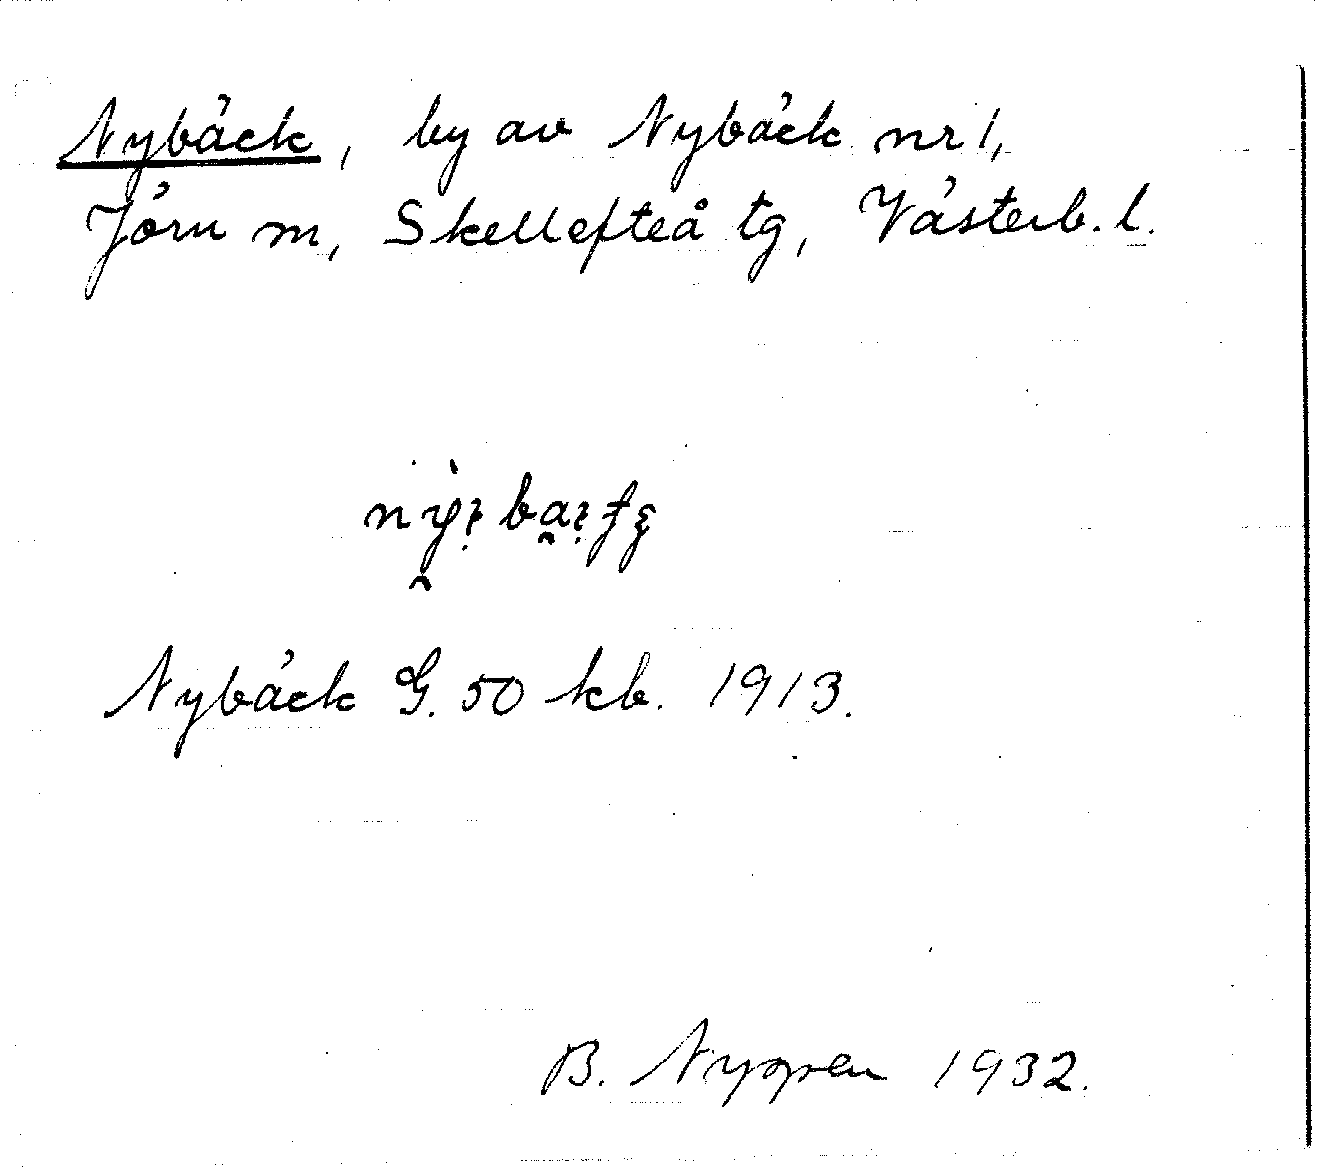 Nybäck, by av Nybäck nr 1,
Jörn m, Skellefteå tg, Västerb. l.
Nybäck G. 50 kb. 1913.
B. Nygren 1932.